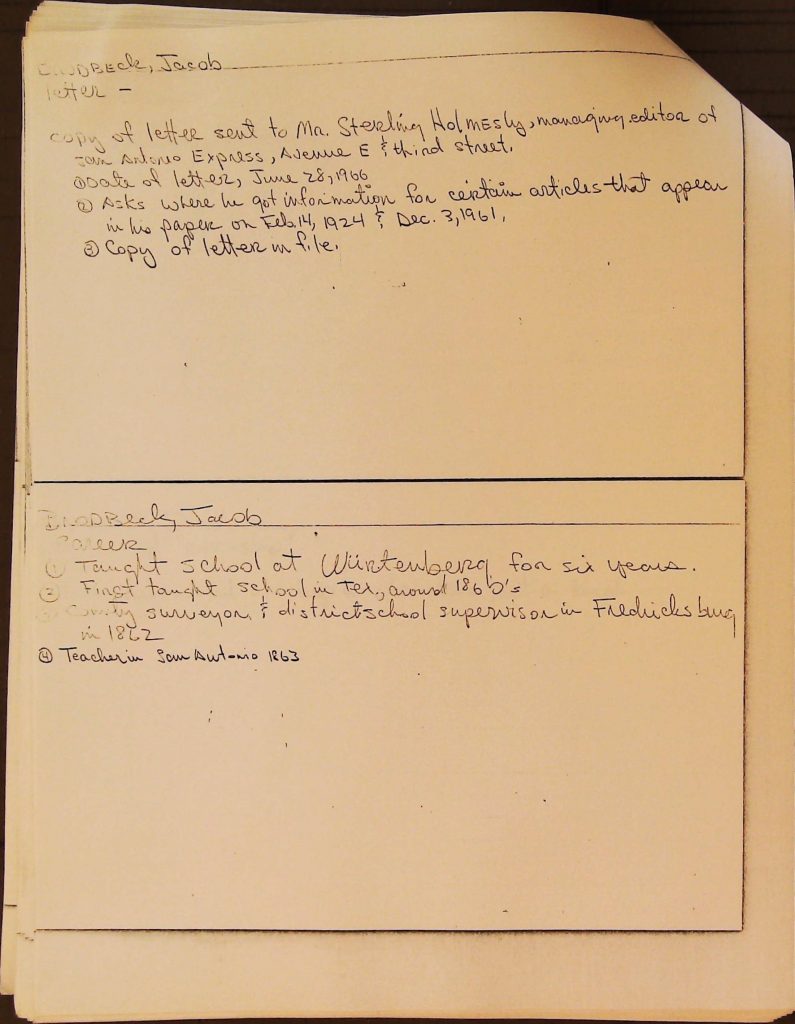 Brodbeck, Jacob
letter -
copy of letter sent to Mr. Sterling Holmesly, managing editor of
San Antonio Express, Avenue E & third street.
① Date of letter, June 28, 1966
② Asks where he got information for certain articles that appear
in his paper on Feb. 14, 1924 & Dec. 3, 1961.
③ Copy of letter in file.
Brodbeck, Jacob
Career
① Taught school at Würtenberg for six years.
② First taught school in Tex., around 1860's
③ County surveyor & district school supervisor in Fredricksburg
in 1862
④ Teacher in San Antonio 1863